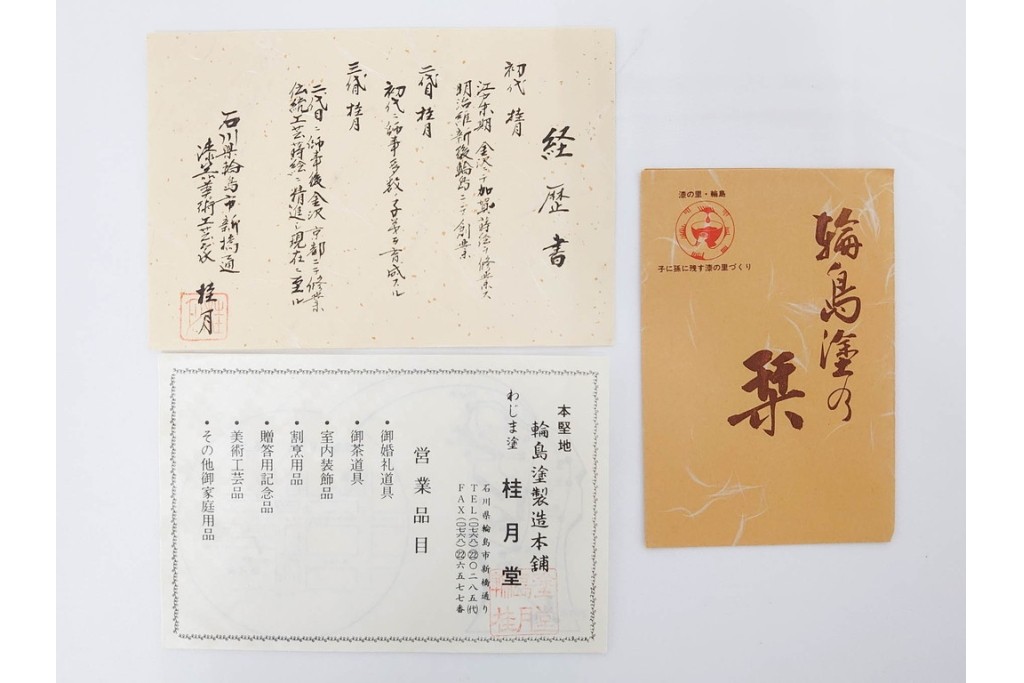 経歴書
初代 桂月
江戸末期金沢ニテ加賀蒔絵ヲ修業ス
明治維新後輪島ニテ創業
二代目 桂月
初代ニ師事多数ノ子弟ヲ育成スル
三代目 桂月
二代目ニ師事後金沢京都ニテ修業
伝統工芸蒔絵ニ精進シ現在ニ至ル
石川県輪島市新橋通
漆芸美術工芸家 桂月
本堅地
輪島塗製造本舗
わじま塗 桂月堂
石川県輪島市新橋通り
TEL(〇七六八)㉒〇二八五(代)
FAX(〇七六八)㉒六五七七番
営業品目
・御婚礼道具
・御茶道具
・室内装飾品
・割烹用品
・贈答用記念品
・美術工芸品
・その他御家庭用品
輪島塗
桂月堂
漆の里・輪島
子に孫に残す漆の里づくり
輪島塗の
栞